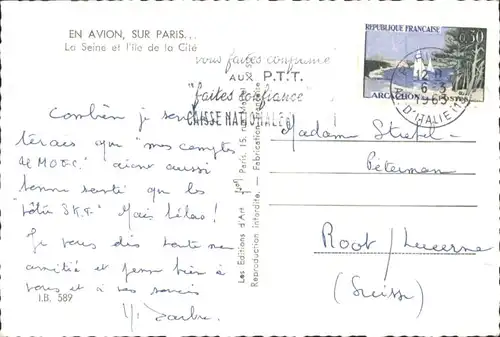 EN AVION, SUR PARIS...
La Seine et l'Ile de la Cité
vous faites confiance
AUX P.T.T.
"faites confiance"
CAISSE NATIONALE
REPUBLIQUE FRANÇAISE
0,30
ARCACHON POSTES
12 H
6-3
1963
D'ITALIE
Combien je sou
terais que "mes comptes
de MOEC" aient aussi
bonne santé que les
"vôtre S.K.F." Mais hélas!
Je vous dis toute ma
amitié et pense bien à
vous et à vos soucis
I.B. 589
Les Editions d'Art
Paris, 15, rue
Reproduction interdite. — Fabrication
Madame Stiehl-
Peterman
Root/Lucerne
(Suisse)